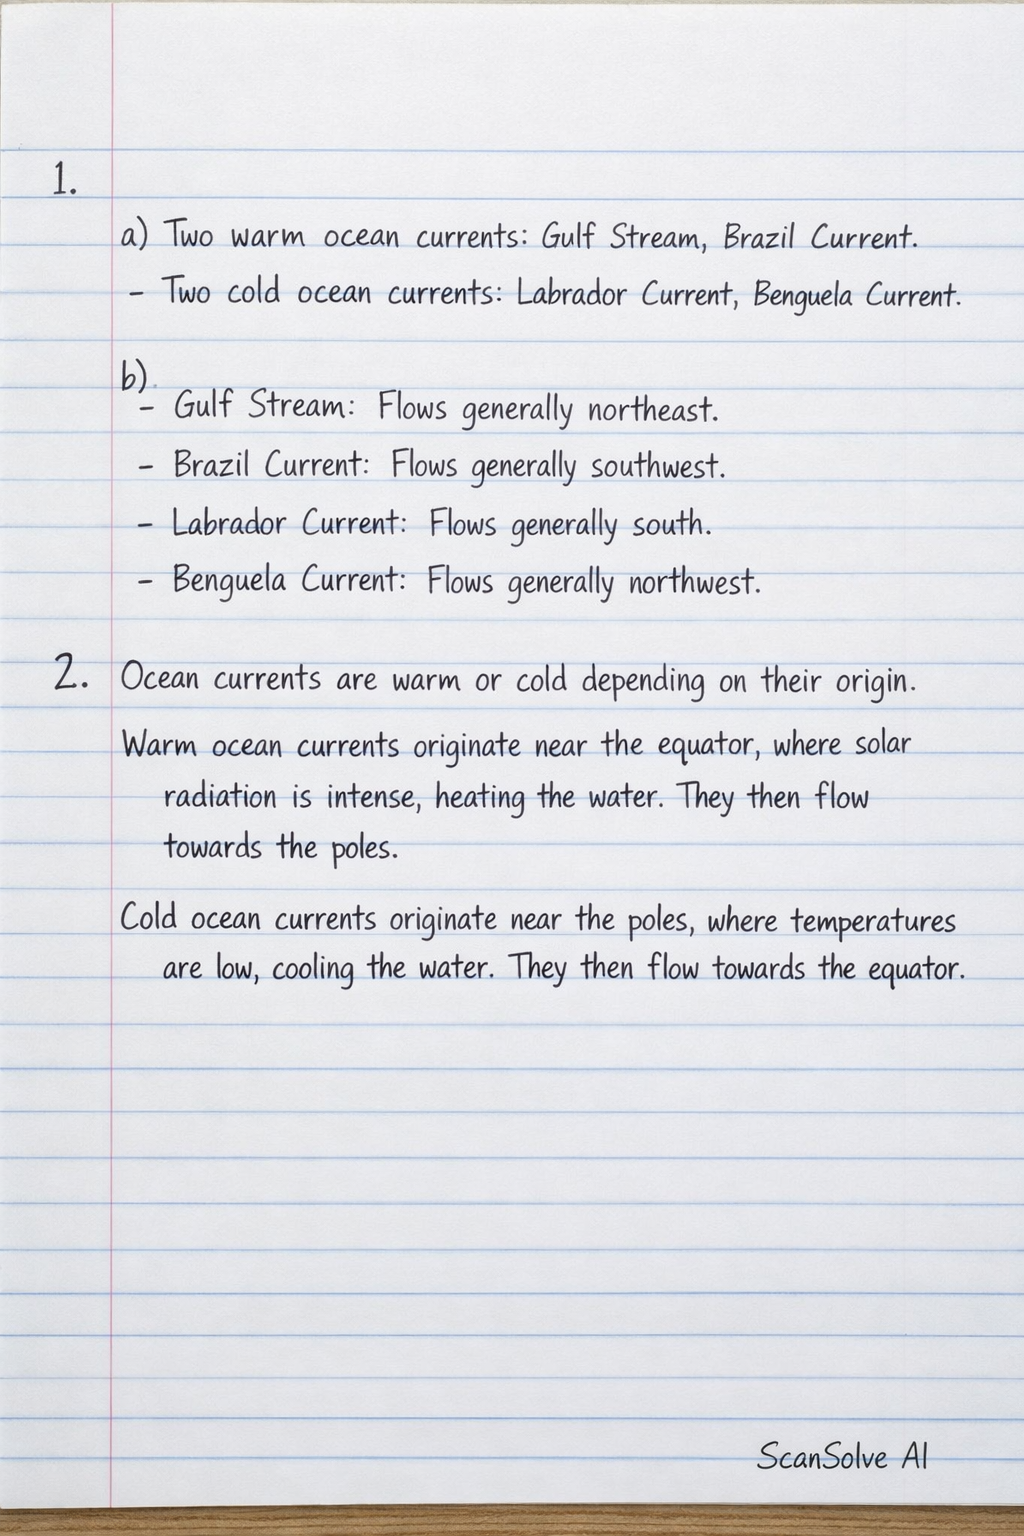 1.
a) Two warm ocean currents: Gulf Stream, Brazil Current.
- Two cold ocean currents: Labrador Current, Benguela Current.
b).
- Gulf Stream: Flows generally northeast.
- Brazil Current: Flows generally southwest.
- Labrador Current: Flows generally south.
- Benguela Current: Flows generally northwest.
2. Ocean currents are warm or cold depending on their origin.
Warm ocean currents originate near the equator, where solar
radiation is intense, heating the water. They then flow
towards the poles.
Cold ocean currents originate near the poles, where temperatures
are low, cooling the water. They then flow towards the equator.
ScanSolve AI